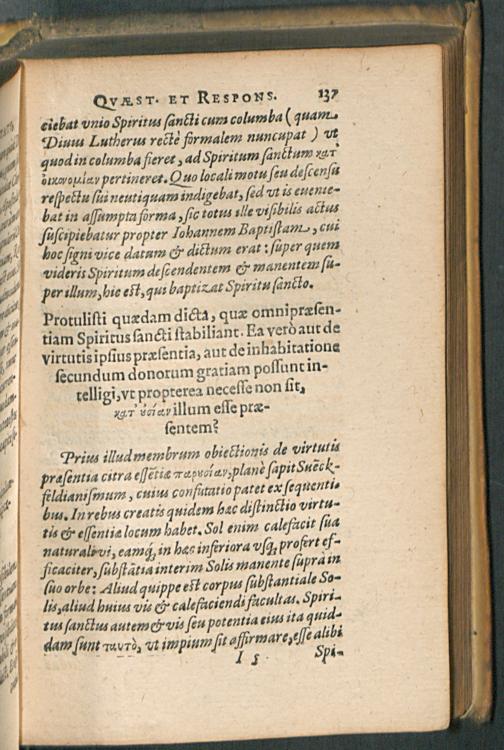 QVÆST. ET RESPONS. 137
ciebat vnio Spiritus sancti cum columba (quam
Diuus Lutherus rectè formalem nuncupat) vt
quod in columba fieret, ad Spiritum sanctum κατ
οικονομίαν pertineret. Quo locali motu seu descensu
respectu sui neutiquam indigebat, sed vt is euenie-
bat in assumpta forma, sic totus ille visibilis actus
suscipiebatur propter Iohannem Baptistam, cui
hoc signi vice datum & dictum erat: super quem
videris Spiritum descendentem & manentem su-
per illum, hic est, qui baptizat Spiritu sancto.
Protulisti quædam dicta, quæ omnipræsen-
tiam Spiritus sancti stabiliant. Ea verò aut de
virtutis ipsius præsentia, aut de inhabitatione
secundum donorum gratiam possunt in-
telligi, vt propterea necesse non sit,
κατ' ȣσίαν illum esse præ-
sentem?
Prius illud membrum obiectionis de virtutis
præsentia citra essētiæ παρȣσίαν, planè sapit Suēck-
feldianismum, cuius confutatio patet ex sequenti-
bus. In rebus creatis quidem hæc distinctio virtu-
tis & essentiæ locum habet. Sol enim calefacit sua
naturali vi, eamq́; in hæc inferiora vsq́; profert ef-
ficaciter, substātia interim Solis manente supra in
suo orbe: Aliud quippe est corpus substantiale So-
lis, aliud huius vis & calefaciendi facultas. Spiri-
tus sanctus autem & vis seu potentia eius ita quid-
dam sunt ταυτὸ, vt impium sit affirmare, esse alibi
I 5 Spi-